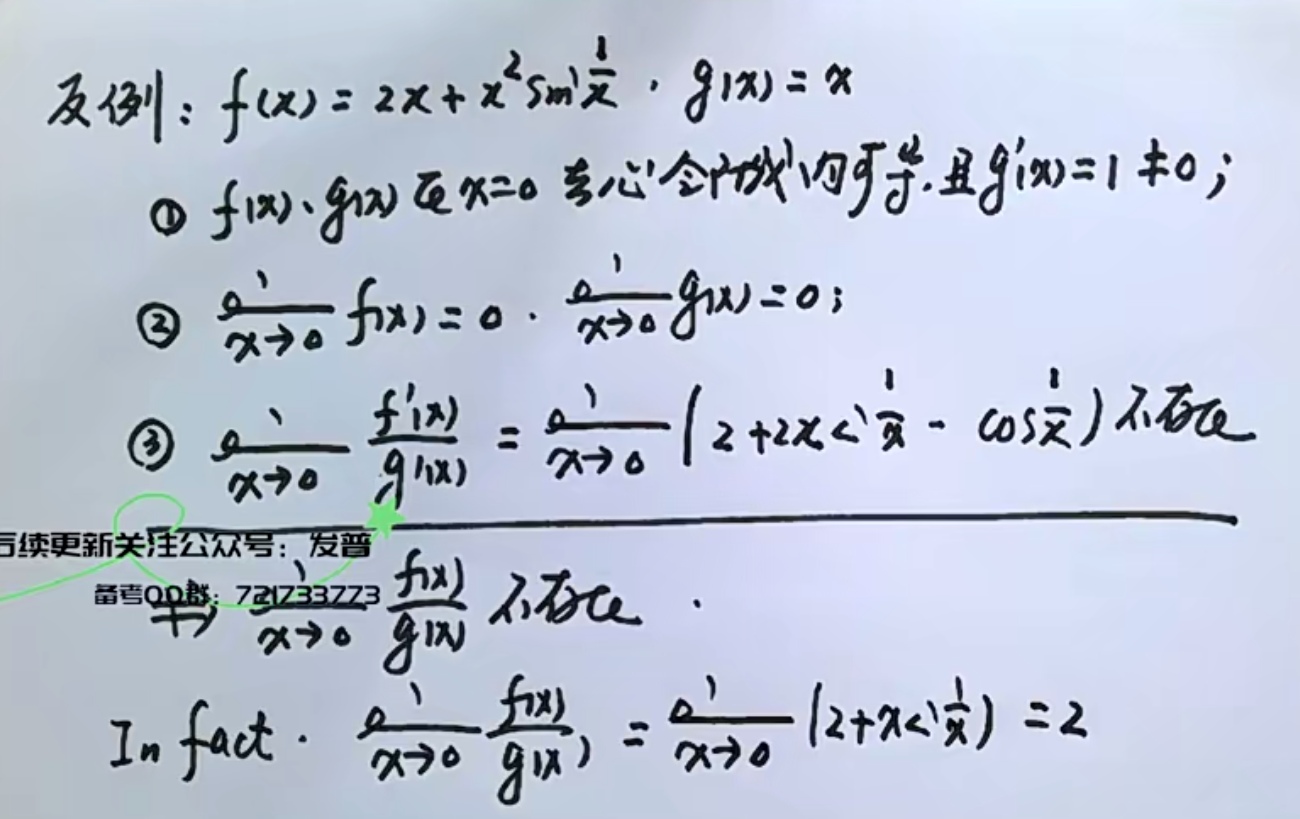 反例: f(x) = 2x + x² sin 1/x, g(x) = x
① f(x)、g(x) 在 x=0 去心邻域内可导,且 g'(x) = 1 ≠ 0;
② lim x→0 f(x) = 0, lim x→0 g(x) = 0;
③ lim x→0 f'(x)/g'(x) = lim x→0 (2 + 2x sin 1/x - cos 1/x) 不存在
后续更新关注公众号：发普
备考QQ群：721733773
⇏ lim x→0 f(x)/g(x) 不存在.
In fact. lim x→0 f(x)/g(x) = lim x→0 (2 + x sin 1/x) = 2